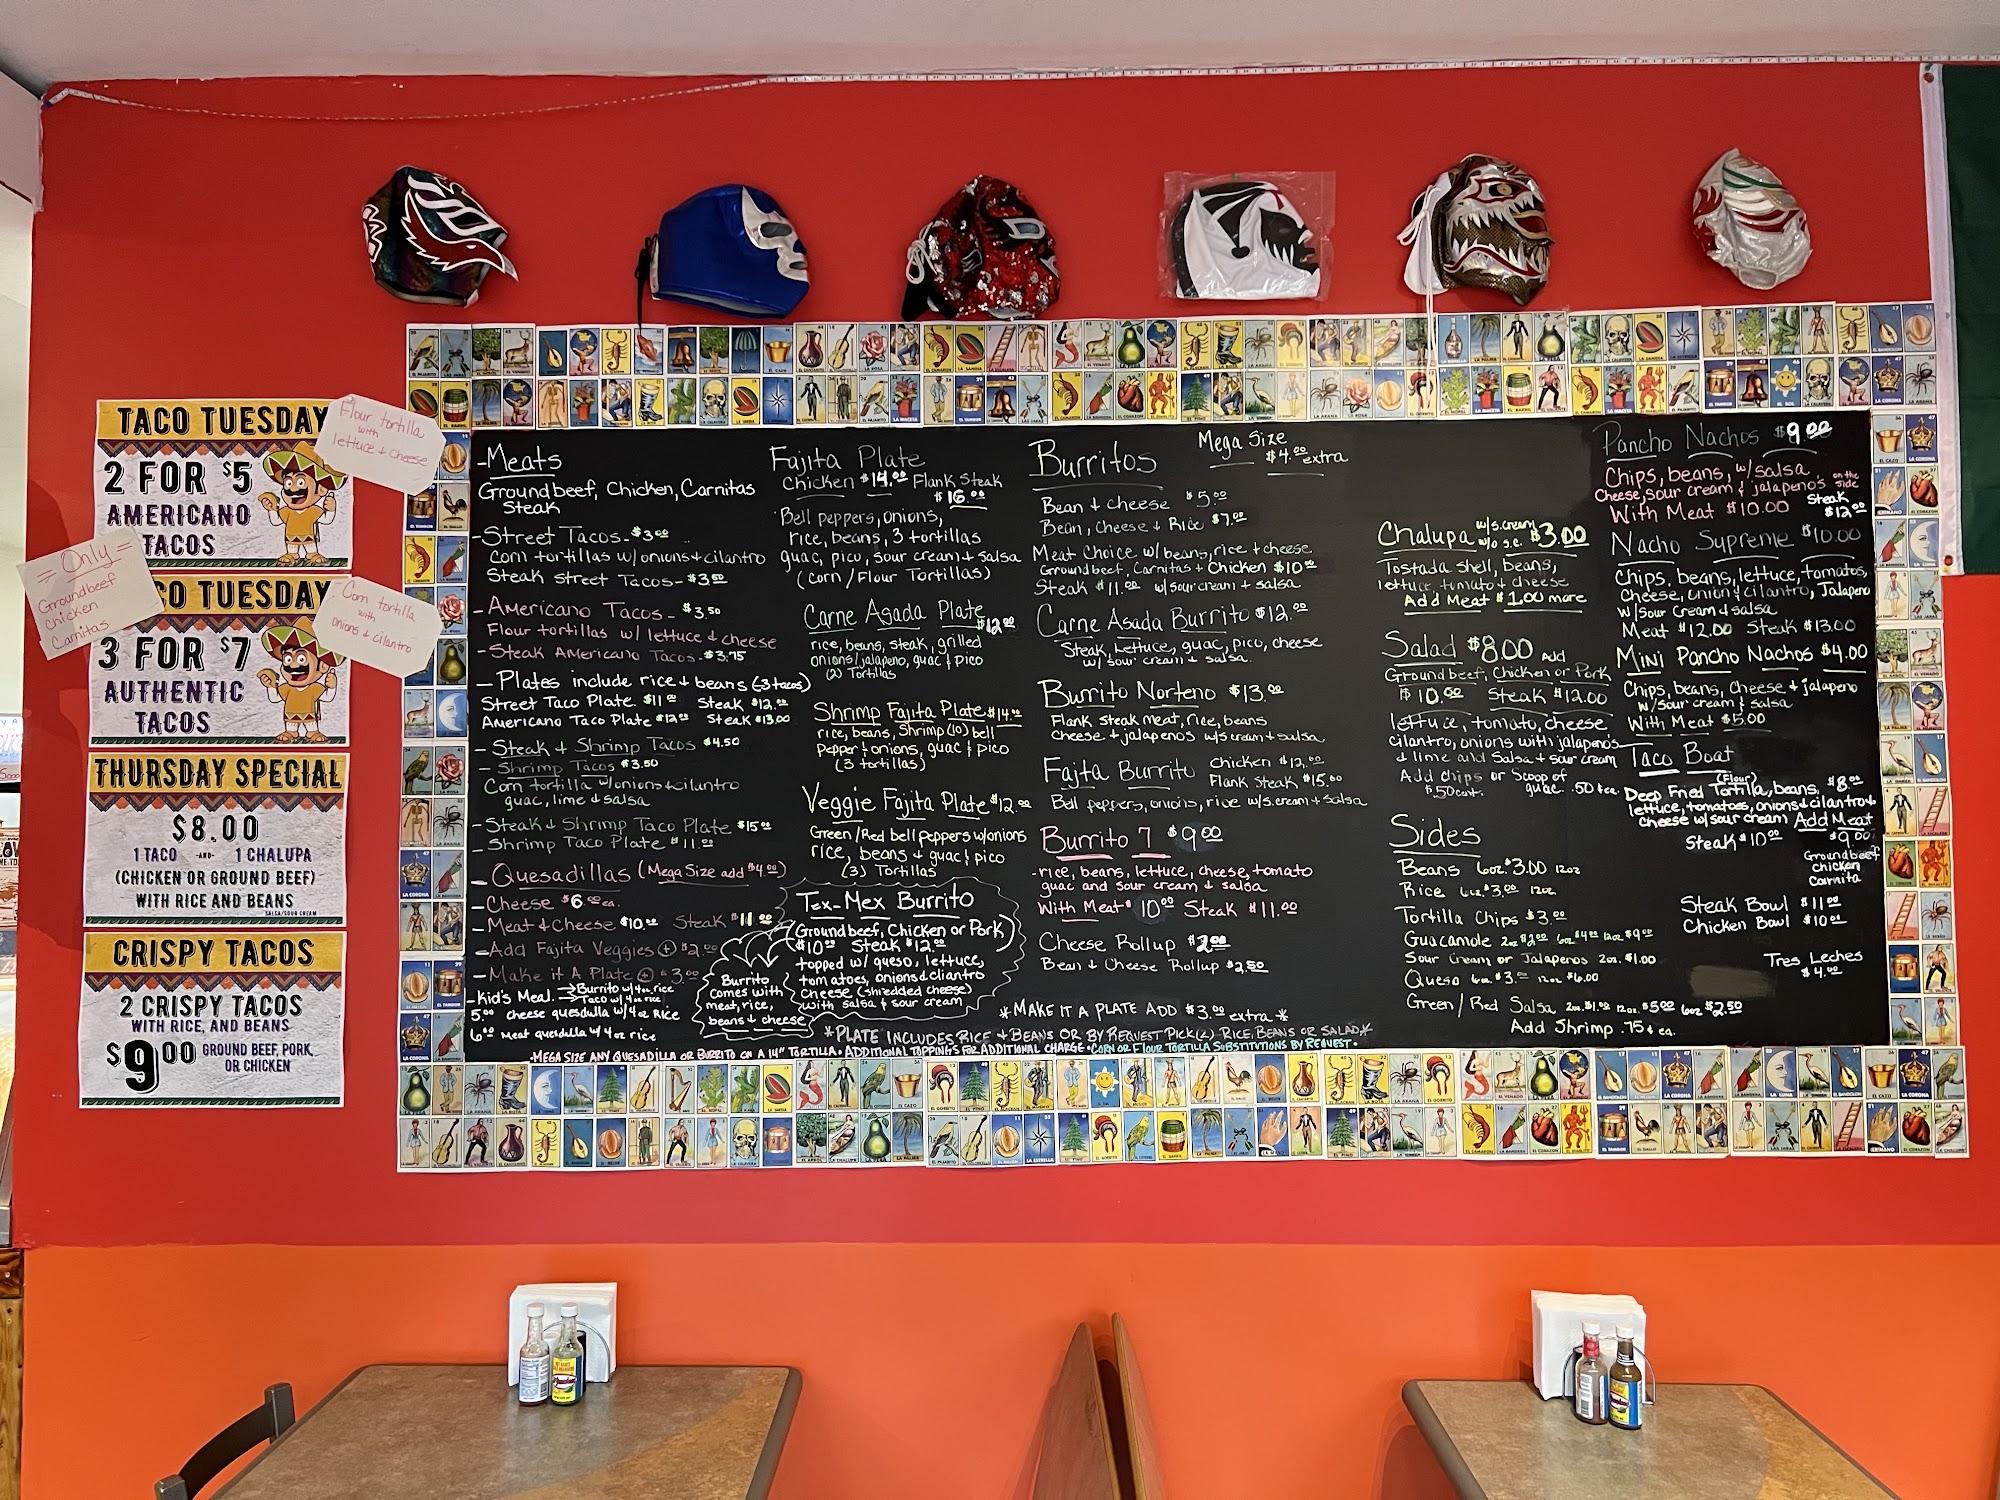 TACO TUESDAY
2 FOR $5
AMERICANO
TACOS
Flour tortilla
with
lettuce + cheese
= Only =
Groundbeef
Chicken
Carnitas
TACO TUESDAY
3 FOR $7
AUTHENTIC
TACOS
Corn tortilla
with
onions + cilantro
THURSDAY SPECIAL
$8.00
1 TACO -AND- 1 CHALUPA
(CHICKEN OR GROUND BEEF)
WITH RICE AND BEANS
SALSA/SOUR CREAM
CRISPY TACOS
2 CRISPY TACOS
WITH RICE, AND BEANS
$9.00 GROUND BEEF, PORK,
OR CHICKEN
-Meats
Groundbeef, Chicken, Carnitas
Steak
-Street Tacos - $3.00
Corn tortillas w/onions + cilantro
Steak Street Tacos - $3.50
-Americano Tacos - $3.50
Flour tortillas w/ lettuce + cheese
-Steak Americano Tacos - $3.75
-Plates include rice + beans (3 tacos)
Street Taco Plate. $11.00 Steak $12.00
Americano Taco Plate $12.00 Steak $13.00
-Steak + Shrimp Tacos $4.50
-Shrimp Tacos $3.50
Corn tortilla w/onions + cilantro
guac, lime + salsa
-Steak + Shrimp Taco Plate $15.00
-Shrimp Taco Plate $11.00
-Quesadillas (Mega Size add $4.00)
-Cheese $6.00 ea.
-Meat + Cheese $10.00 Steak $11.00
-Add Fajita Veggies + $2.00
-Make it A Plate + $3.00
-Kid's Meal. → Burrito w/ 4oz rice
→ Taco w/ 4oz rice
5.00 cheese quesdulla w/ 4oz Rice
6.00 Meat quesdulla w/ 4oz rice
Fajita Plate
Chicken $14.00 Flank Steak
$16.00
Bell peppers, onions,
rice, beans, 3 tortillas
guac, pico, sour cream + salsa
(Corn/Flour Tortillas)
Carne Asada Plate
$12.00
rice, beans, steak, grilled
onions/jalapeño, guac + pico
(2) Tortillas
Shrimp Fajita Plate $14.00
rice, beans, Shrimp (10) bell
Pepper + onions, guac + pico
(3 tortillas)
Veggie Fajita Plate $12.00
Green/Red bell peppers w/onions
rice, beans + guac + pico
(3) Tortillas
Tex-Mex Burrito
Groundbeef, Chicken or Pork
$10.00 Steak $12.00
topped w/ queso, lettuce,
tomatoes, onions + cilantro
Cheese (shredded cheese)
with salsa + sour cream
Burrito
comes with
meat, rice,
beans + cheese
Burritos
Mega Size
$4.00 extra
Bean + cheese $5.00
Bean, Cheese + Rice $7.00
Meat Choice w/ beans, rice + cheese
Groundbeef, Carnitas + Chicken $10.00
Steak $11.00 w/sour cream + salsa
Carne Asada Burrito $12.00
Steak, Lettuce, guac, pico, cheese
w/ sour cream + salsa.
Burrito Norteno $13.00
Flank Steak meat, rice, beans
cheese + jalapenos w/s cream + salsa
Fajta Burrito Chicken $12.00
Flank Steak $15.00
Bell peppers, onions, rice w/s. cream + salsa
Burrito 7 $9.00
-rice, beans, lettuce, cheese, tomato
guac and sour cream + salsa
With Meat $10.00 Steak $11.00
Cheese Rollup $2.00
Bean + Cheese Rollup $2.50
*MAKE IT A PLATE ADD $3.00 extra*
*PLATE INCLUDES RICE + BEANS OR BY REQUEST PICK (2) RICE, BEANS OR SALAD*
-MEGA SIZE ANY QUESADILLA OR BURRITO ON A 14" TORTILLA • ADDITIONAL TOPPINGS FOR ADDITIONAL CHARGE • CORN OR FLOUR TORTILLA SUBSTITUTIONS BY REQUEST •
Chalupa w/s. cream
w/o s.c. $3.00
Tostada shell, beans,
lettuce, tomato + cheese
Add Meat $1.00 more
Salad $8.00 Add
Groundbeef, Chicken or Pork
$10.00 Steak $12.00
lettuce, tomato, cheese
cilantro, onions with jalapeno's
+ lime and Salsa + sour cream
Add chips or Scoop of
$.50 cent. guac. .50 ea.
Sides
Beans 6oz. $3.00 12oz
Rice 6oz $3.00 12oz
Tortilla Chips $3.00
Guacamole 2oz $2.00 6oz $4.00 12oz $9.00
Sour Cream or Jalapenos 2oz. $1.00
Queso 6oz $3.00 12oz $6.00
Green/Red Salsa 2oz. $1.00 12oz. $5.00 6oz $2.50
Add Shrimp .75¢ ea.
Pancho Nachos $9.00
Chips, beans, w/salsa
Cheese, sour cream + jalapeno's on the
side
With Meat $10.00 Steak
$12.00
Nacho Supreme $10.00
Chips, beans, lettuce, tomatoes,
Cheese, onion + cilantro, Jalapeno
w/Sour Cream + salsa
Meat $12.00 Steak $13.00
Mini Pancho Nachos $4.00
Chips, beans, Cheese + jalapeno
w/sour cream + salsa
With Meat $5.00
Taco Boat
(Flour)
Deep Fried Tortilla, beans, $8.00
lettuce, tomatoes, onions + cilantro +
cheese w/sour cream Add Meat
Steak $10.00 $9.00
Groundbeef
chicken
Carnita
Steak Bowl $11.00
Chicken Bowl $10.00
Tres Leches
$4.00